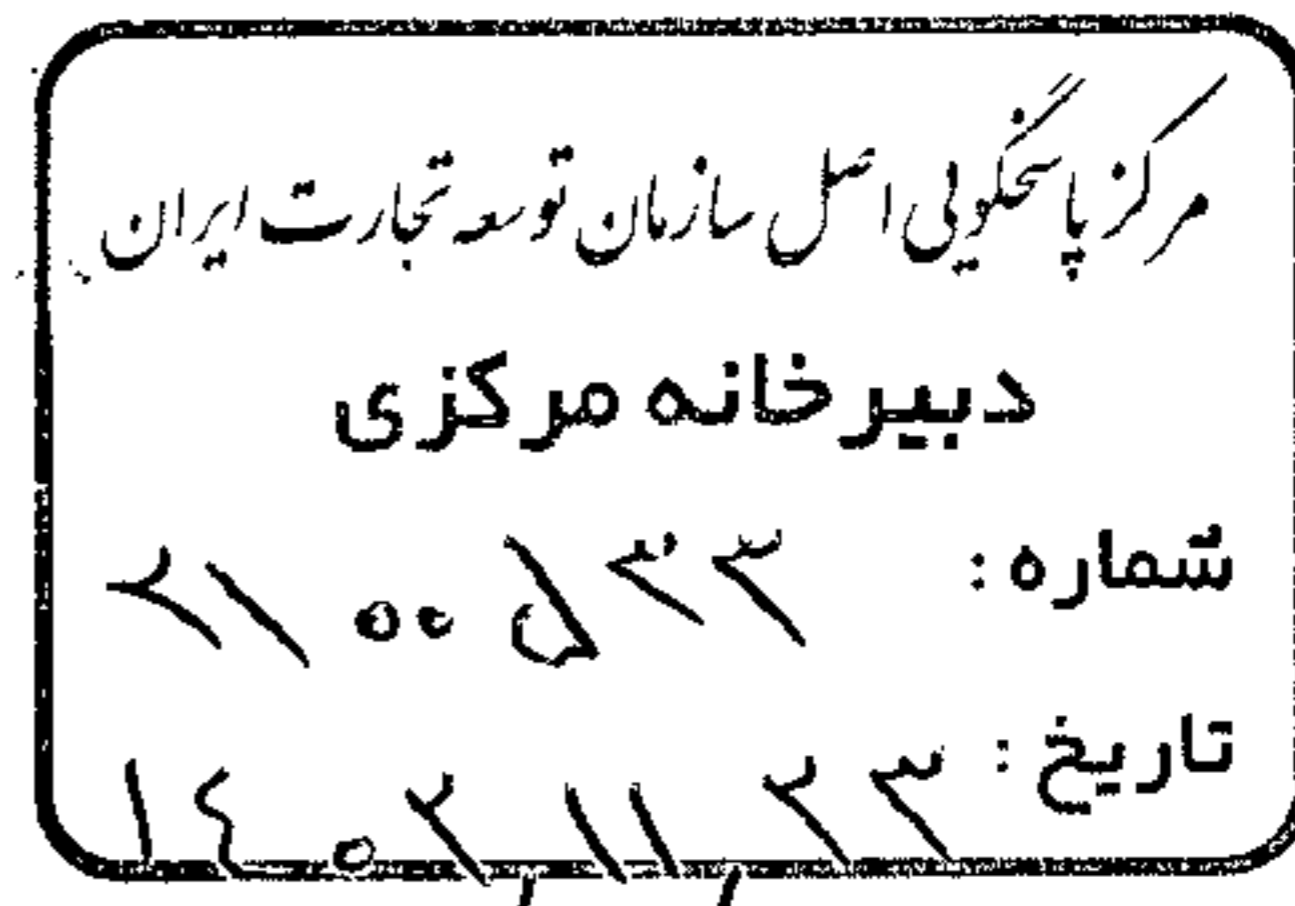 مرکز پاسخگویی سازمان توسعه تجارت ایران
دبیرخانه مرکزی
شماره :
تاریخ : ۱۴۰۲,۱۱,۲۳